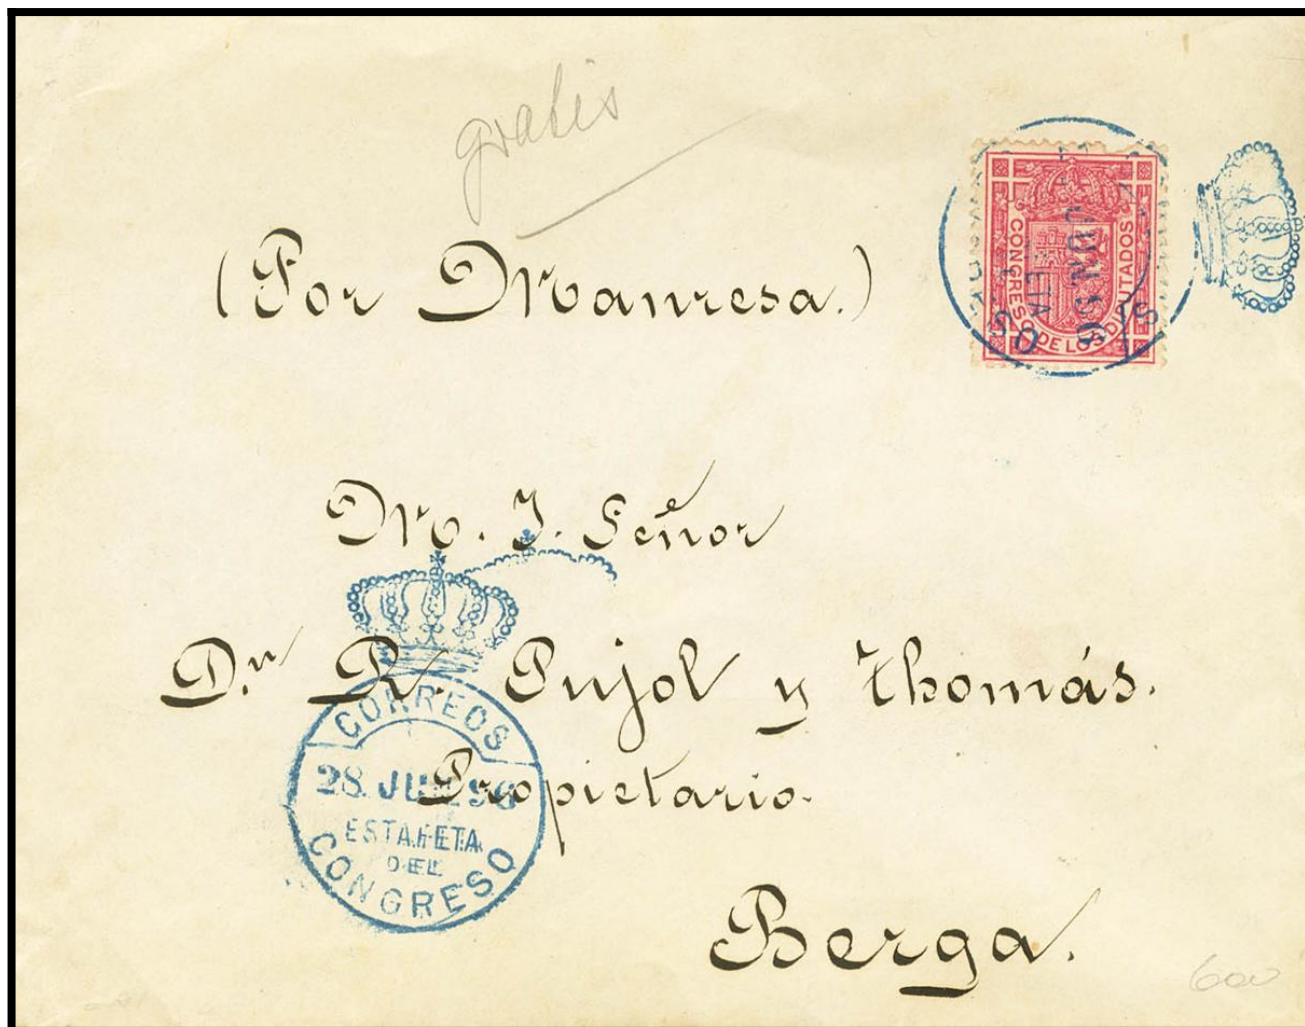 gratis
CONGRESO DE LOS DIPUTADOS
(Por Manresa.)
M. I. Señor
Dn R. Pujol y Thomás.
Propietario.
Berga.
CORREOS
28 JUN 96
ESTAFETA
DEL
CONGRESO
600